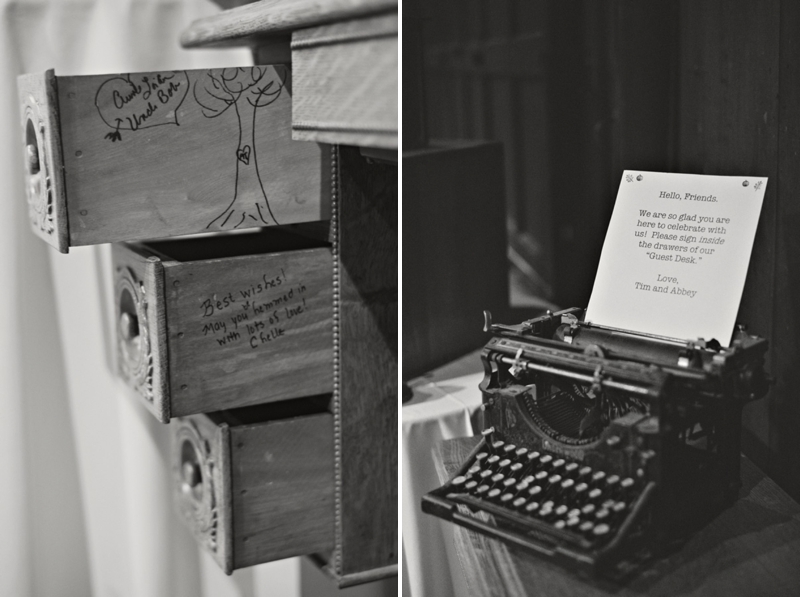 Uncle Bob
Best wishes!
May you hemmed in
with lots of love!
Chelle
Hello, Friends.
We are so glad you are
here to celebrate with
us! Please sign inside
the drawers of our
"Guest Desk."
Love,
Tim and Abbey